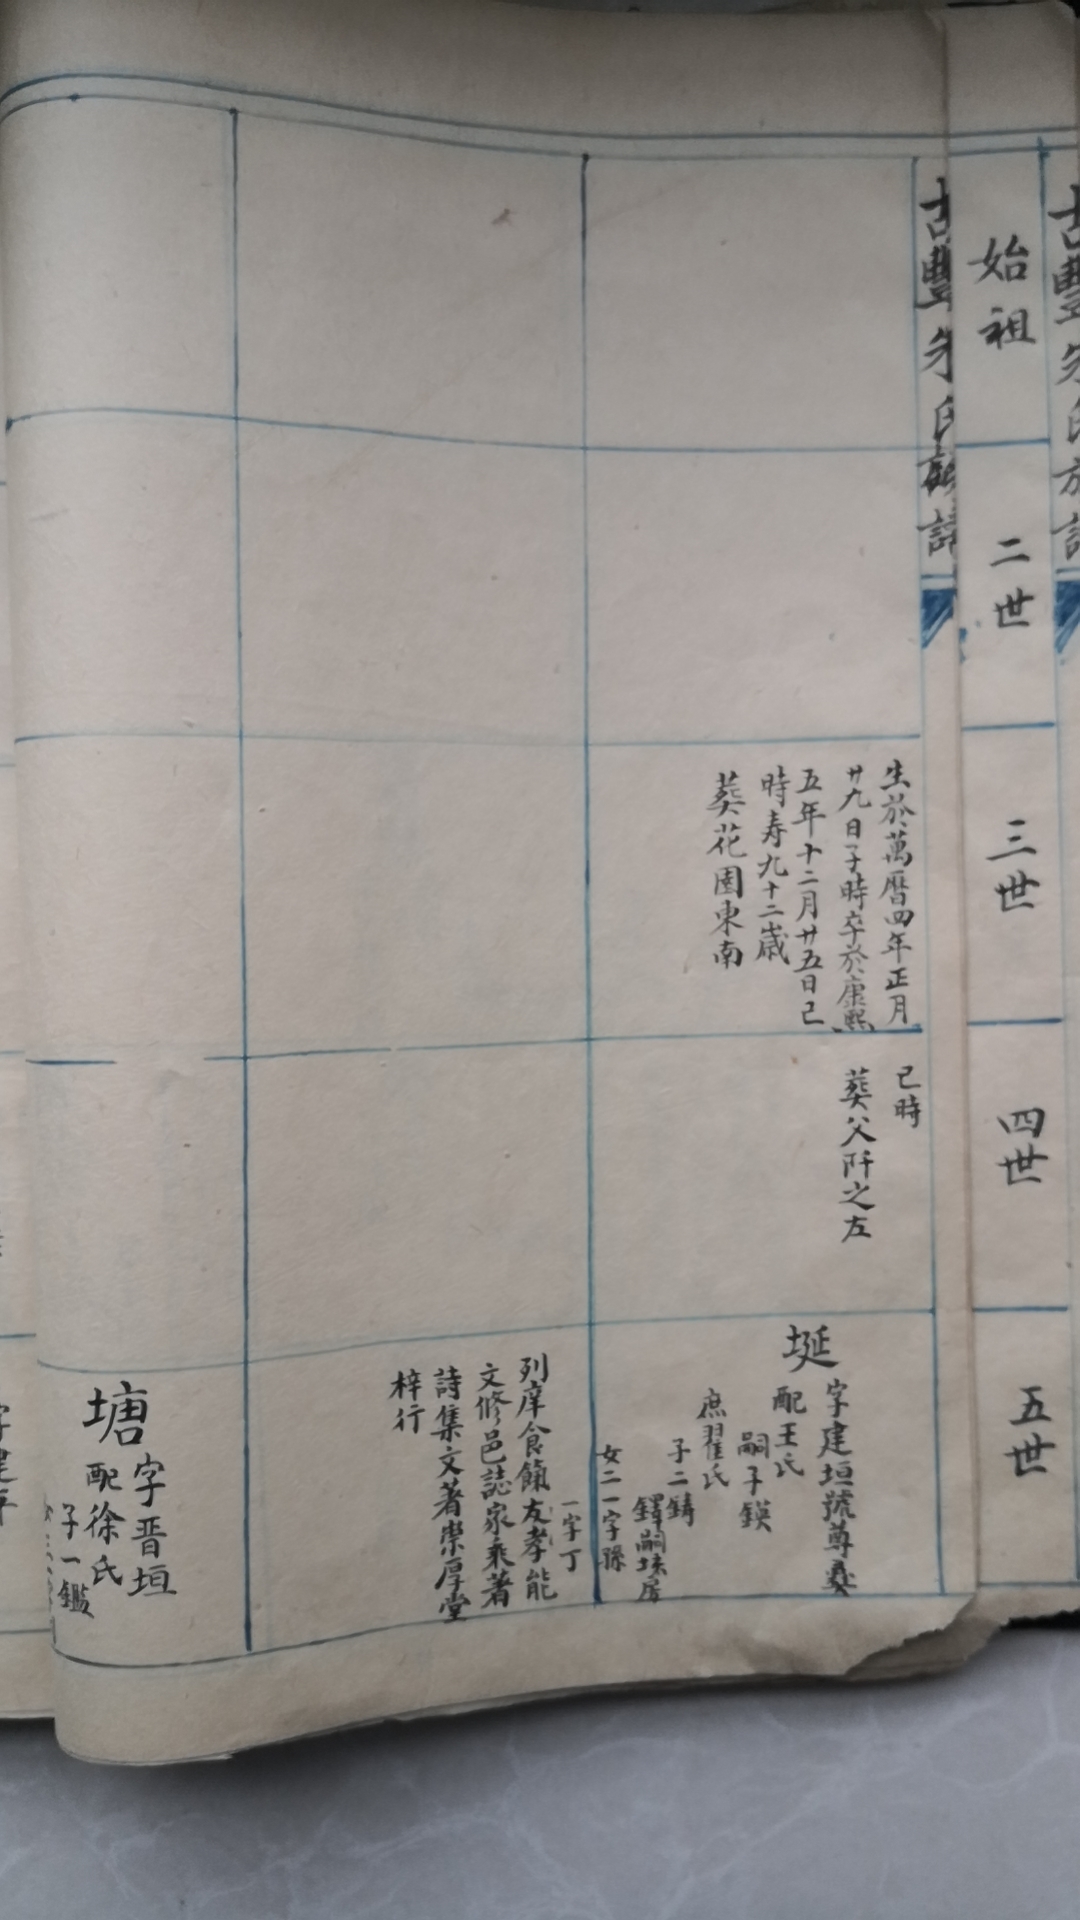 古豐朱氏族譜
始祖
二世
三世
四世
五世
古豐朱氏族譜
生於萬曆四年正月
廿九日子時卒於康熙
五年十二月廿五日已
時寿九十二歲
葬花園東南
已時
葬父阡之左
埏
字建垣號尊彝
配王氏
嗣子鍈
庶翟氏
子二鑄
鐸嗣埰房
女二一字孫
一字丁
列庠食餼友孝能
文修邑誌家乘著
詩集文著崇厚堂
梓行
塘
字晋垣
配徐氏
子一鑑